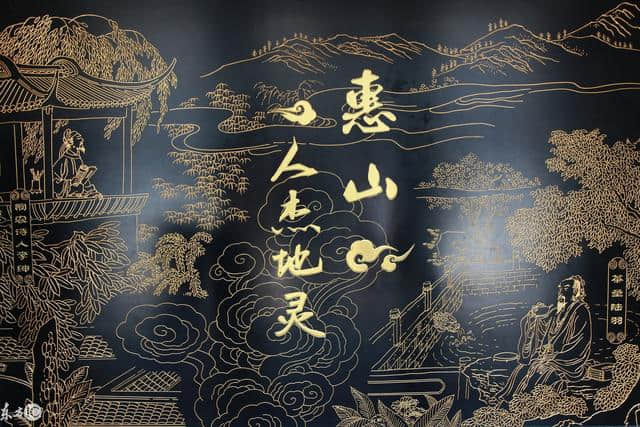 惠山
人杰地灵
茶圣陆羽
悯农诗人李绅
东方IC